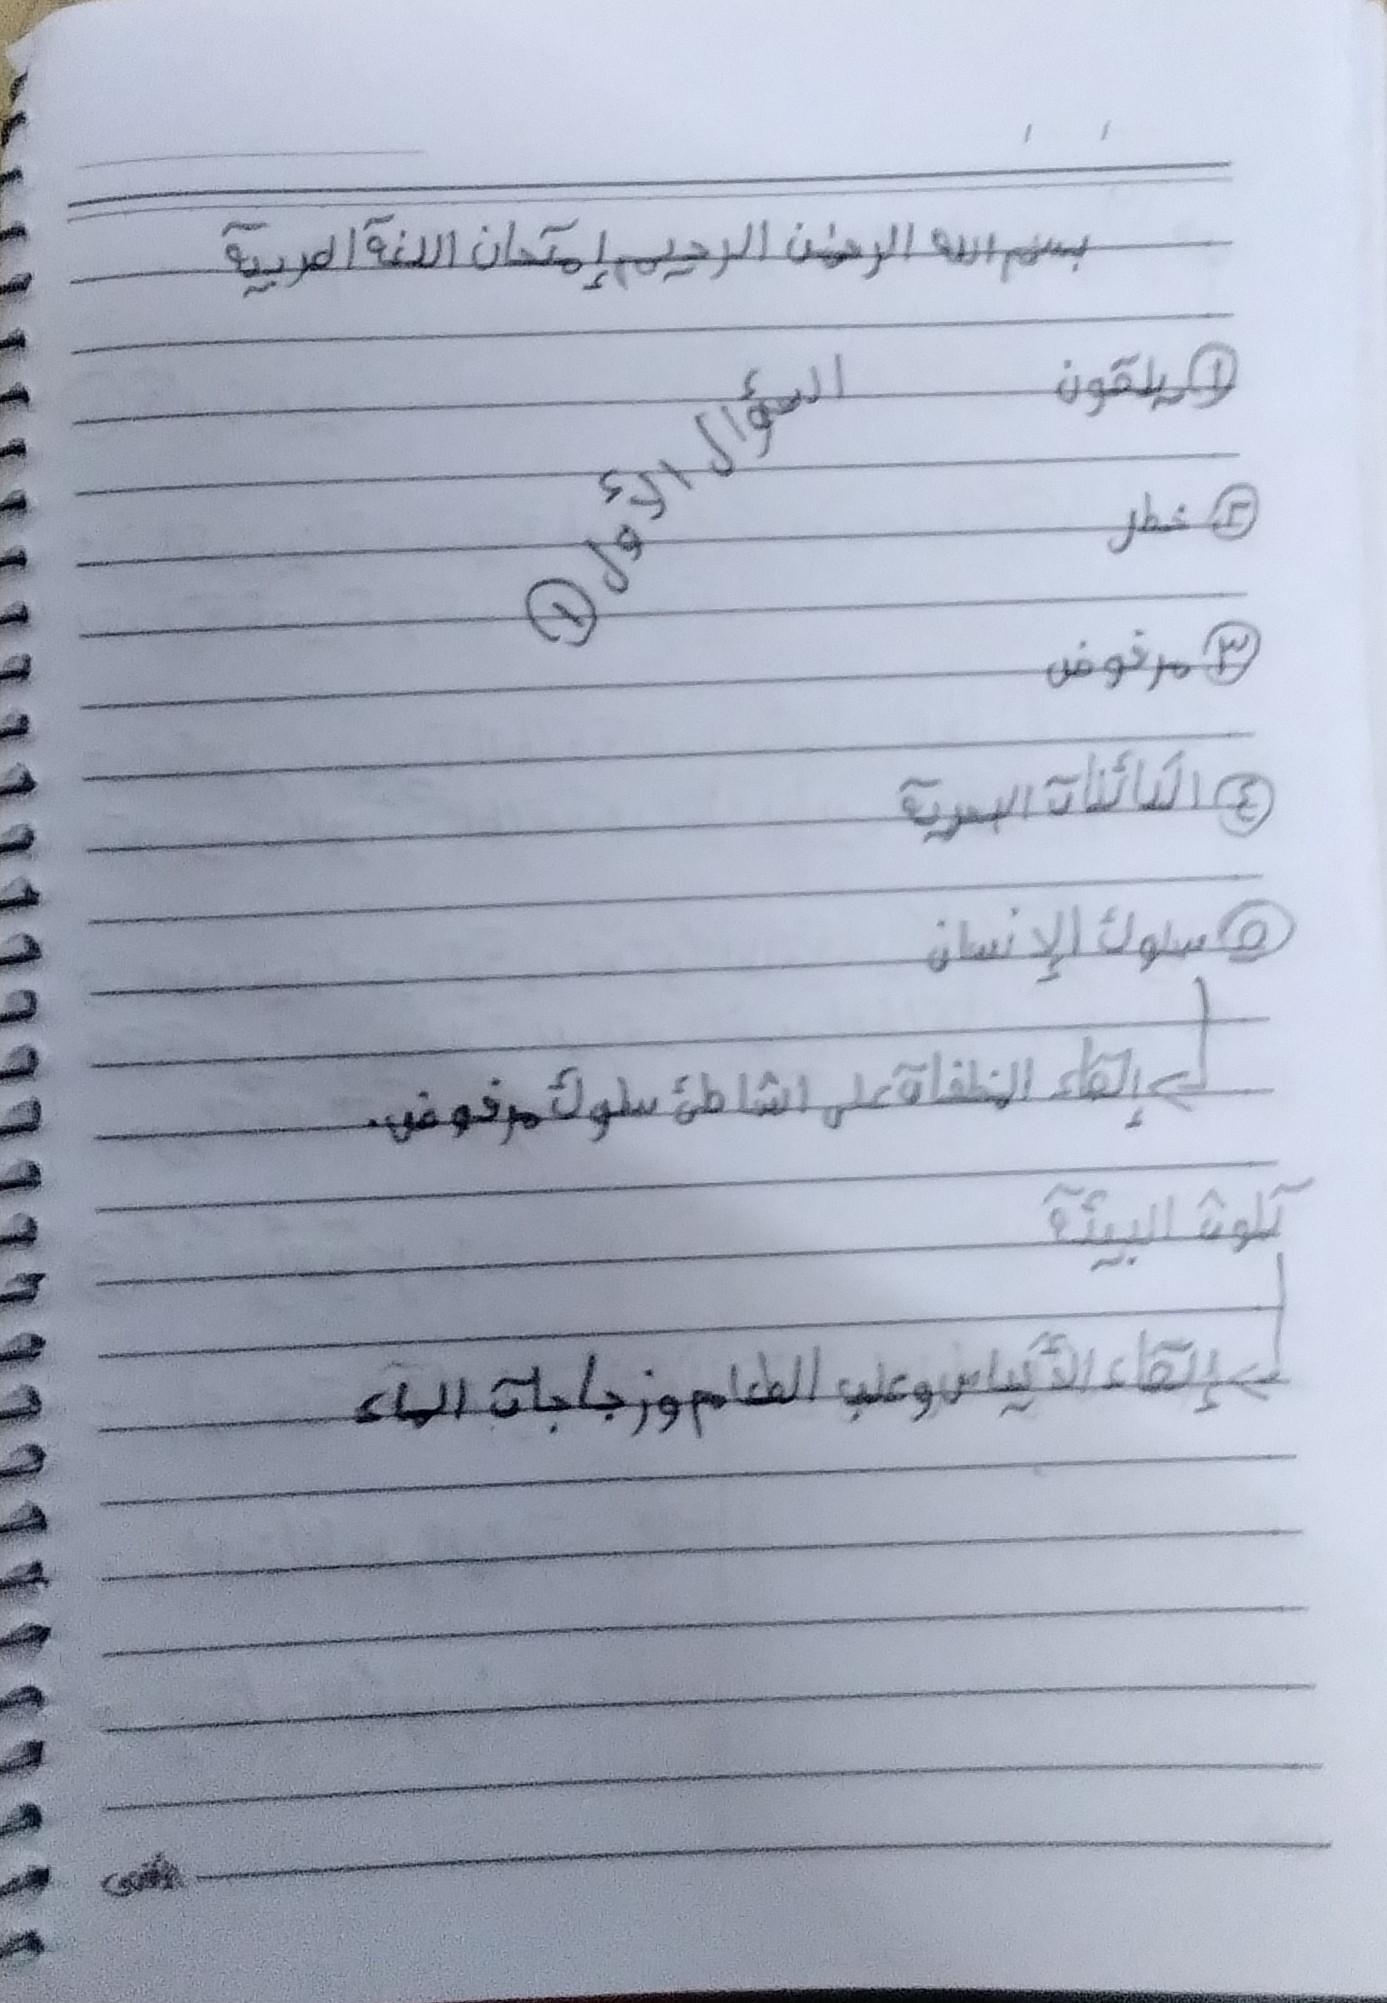 بسم الله الرحمن الرحيم إمتحان اللغة العربية
السؤال الأول ①
① يلقون
② خطر
③ مرفوض
④ الكائنات البحرية
⑤ سلوك الإنسان
إلقاء النظفاة على الشاطئ سلوك مرفوض.
تلوث البيئة
إلقاء الأكياس وعلب الطعام وزجاجات الماء